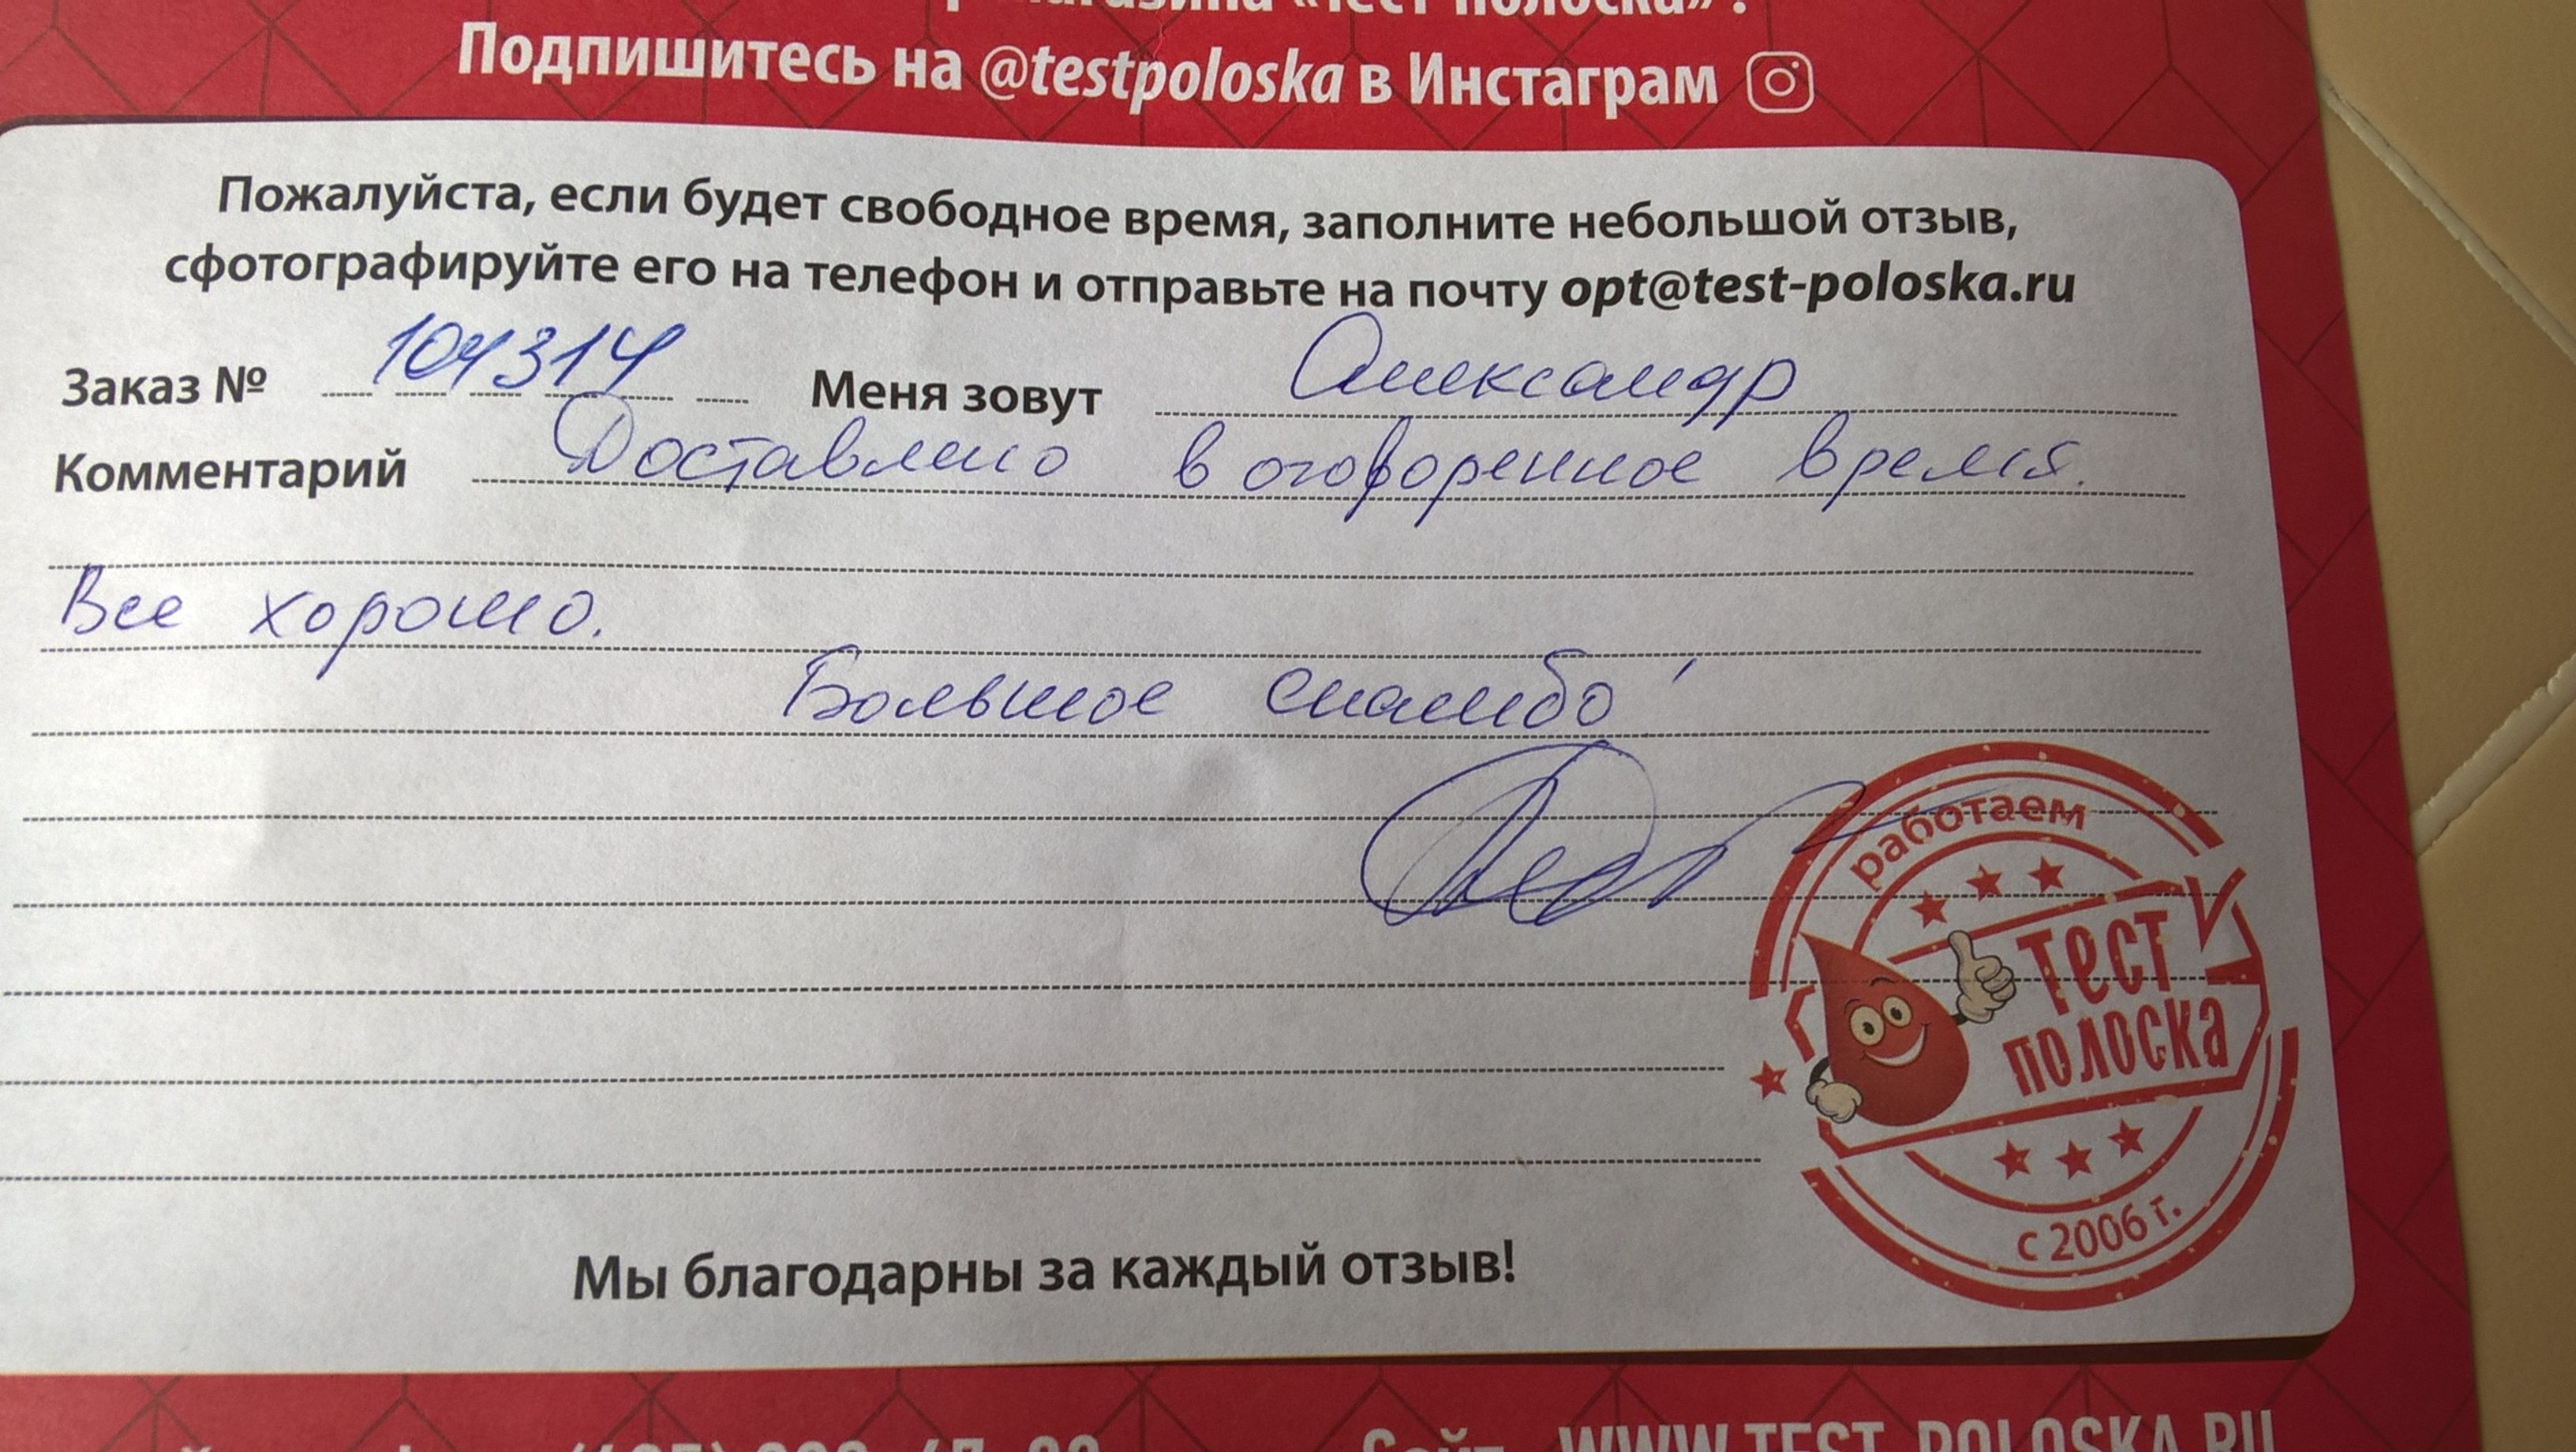 «Тест-полоска» !
Подпишитесь на @testpoloska в Инстаграм
Пожалуйста, если будет свободное время, заполните небольшой отзыв,
сфотографируйте его на телефон и отправьте на почту opt@test-poloska.ru
Заказ № 104314 Меня зовут Александр
Комментарий Доставлено в оговоренное время.
Все хорошо.
Большое спасибо!
работаем
Тест
полоска
с 2006 г.
Мы благодарны за каждый отзыв!
Сайт WWW.TEST-POLOSKA.RU